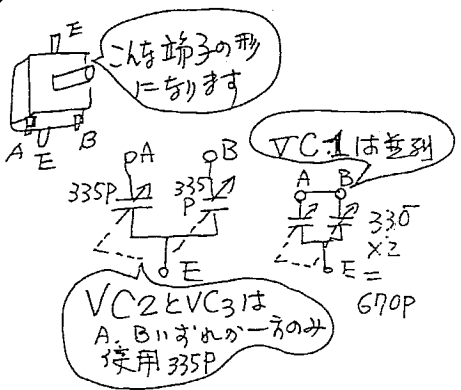 E
こんな端子の形
になります
A
E
B
A
B
335P
335
P
E
VC1は並列
A
B
335
×2
=
670P
E
VC2とVC3は
A、Bいずれか一方のみ
使用335P